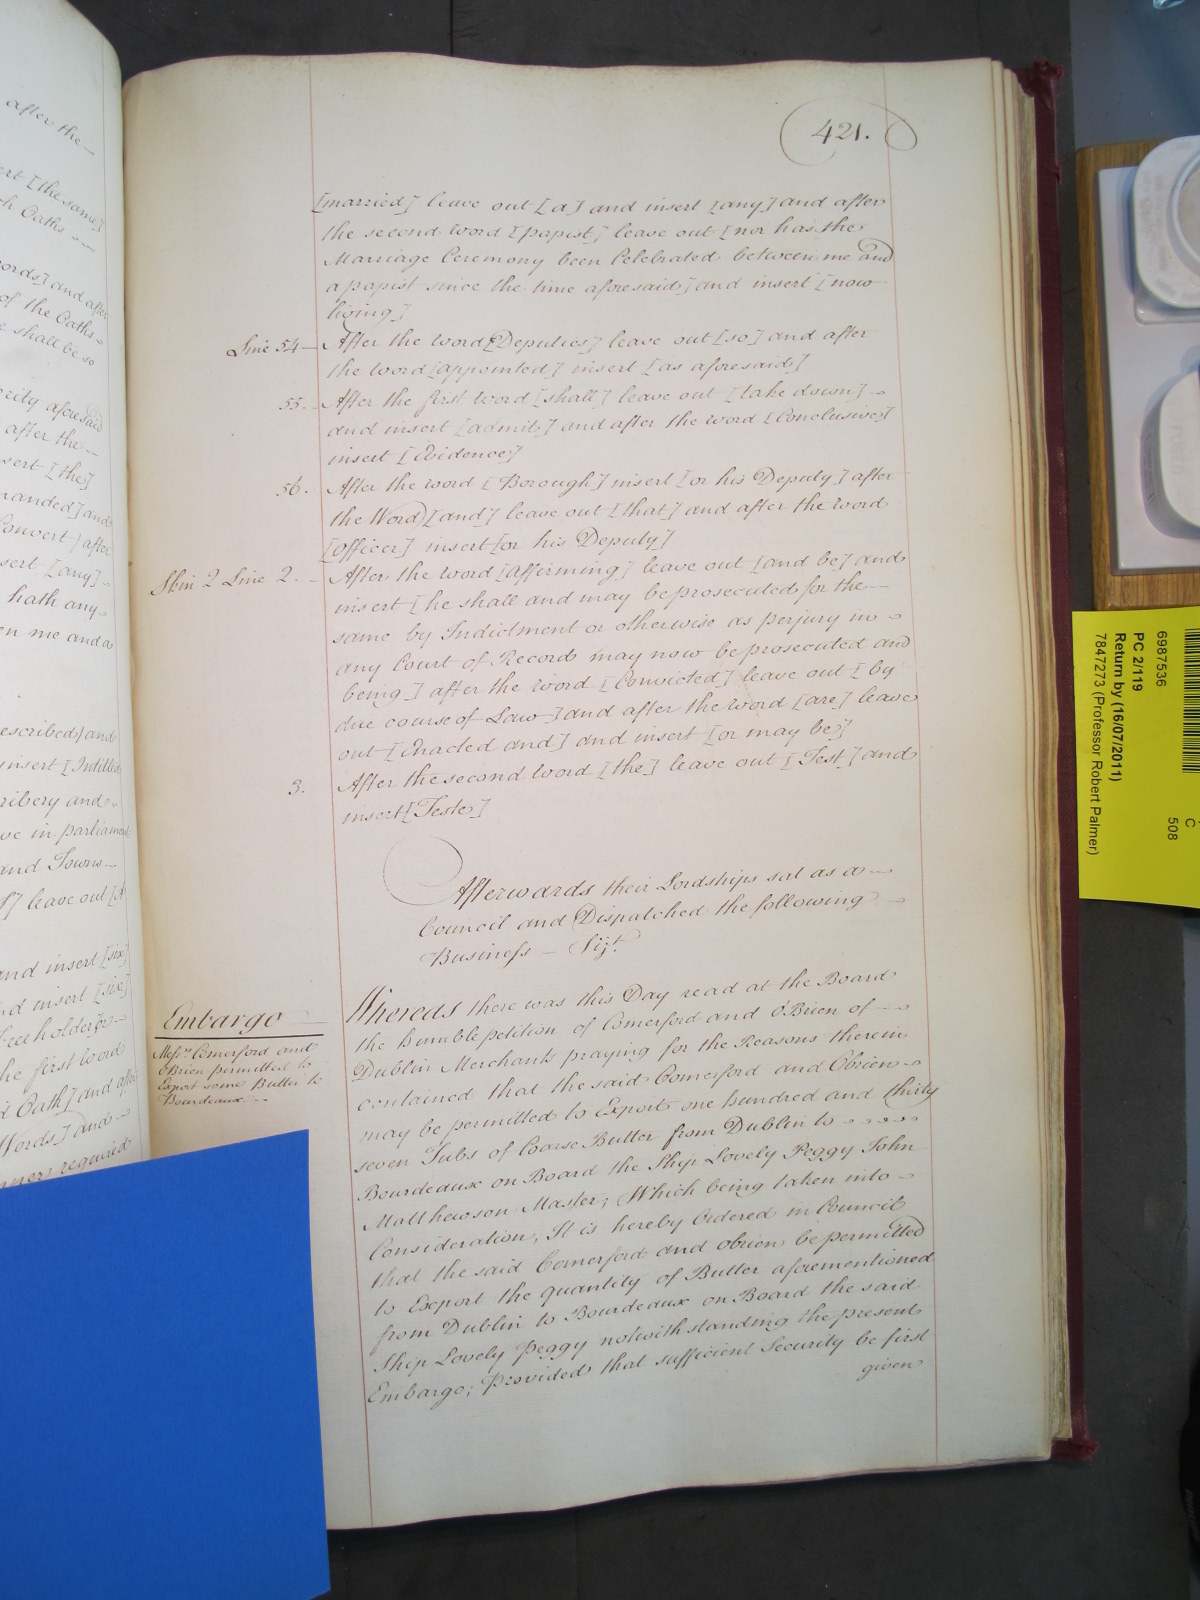 after the
ert [the same]
h Oaths
ords] and after
of the Oaths
e shall be so
ority aforesaid
after the
sert [the]
manded] and
Convert] after
sert [any]
hath any
en me and a
escribed] and
insert [Intitled
ribery and
ve in parliament
and Towns
leave out [
and insert [six]
d insert [six]
Freeholders
he first word
d Oath] and after
Words] and
required
421.
[married] leave out [a] and insert [any] and after
the second word [papist] leave out [nor has the
Marriage Ceremony been Celebrated between me and
a papist since the time aforesaid] and insert [now
living]
Line 54 — After the word [Deputies] leave out [so] and after
the word [appointed] insert [as aforesaid]
55. After the first word [shall] leave out [take down]
and insert [admit] and after the word [Conclusive]
insert [Evidence]
56. After the word [Borough] insert [or his Deputy] after
the Word [and] leave out [that] and after the word
[officer] insert [or his Deputy]
Skin 2 Line 2. — After the word [affirming] leave out [and be] and
insert [he shall and may be prosecuted for the
same by Indictment or otherwise as perjury in
any Court of Record may now be prosecuted and
being] after the word [Convicted] leave out [by
due course of Law] and after the word [are] leave
out [Enacted and] and insert [or may be]
3. After the second word [the] leave out [Test] and
insert [Teste]
Afterwards their Lordships sat as a
Council and Dispatched the following
Business — Vizt.
Embargo
Messrs. Comerford and
OBrien permitted to
Export some Butter to
Bourdeaux
Whereas there was this Day read at the Board
the humble petition of Comerford and OBrien of
Dublin Merchants praying for the Reasons therein
contained that the said Comerford and Obrien
may be permitted to Export one hundred and thirty
seven Tubs of Coarse Butter from Dublin to
Bourdeaux on Board the Ship Lovely Peggy John
Matthewson Master; Which being taken into
Consideration, It is hereby Ordered in Council
that the said Comerford and Obrien be permitted
to Export the quantity of Butter aforementioned
from Dublin to Bourdeaux on Board the said
Ship Lovely Peggy notwithstanding the present
Embargo; Provided that sufficient Security be first
given
6987536
PC 2/119
Return by (16/07/2011)
7847273 (Professor Robert Palmer)
C
508